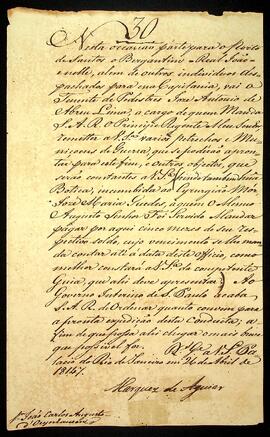 30
Nesta occasião parte para o Porto
de Santos o Bergantim Real João,
e nelle, alem de outros individuos des-
pachados para essa Capitania, vai o
Tenente de Pedestres Joze Antonio de
Abreu Lima; a cargo de quem Manda
S. A. R. o Principe Regente Meu Senhor
remetter a V. S.ª varios Petrechos e Mu-
nições de Guerra, que se poderão apron-
tar para este fim, e outros objectos, que
serão constantes a V. S.ª, indo tambem huma
Botica, incumbida ao Cyrurgião Mor
Joze Maria Guedes, a quem o Mesmo
Augusto Senhor Foi Servido Mandar
pagar por aqui cinco mezes do seu res-
pectivo soldo, cujo vencimento se lhe man-
da contar até á data deste officio, como
melhor constará a V. S.ª da competente
Guia, que ali deve apresentar. Ao
Governo Interino de S. Paulo acaba
S. A. R. de Ordenar quanto convem
para a prompta expedição desta conducta; a
fim de que possa ali chegar o mais breve
que possivel for. D.s G.e a V. S.ª Pa-
lacio do Rio de Janeiro em 26 de Abril de
1814.
Marquez de Aguiar
S.r João Carlos Augusto
d'Oyenhausen